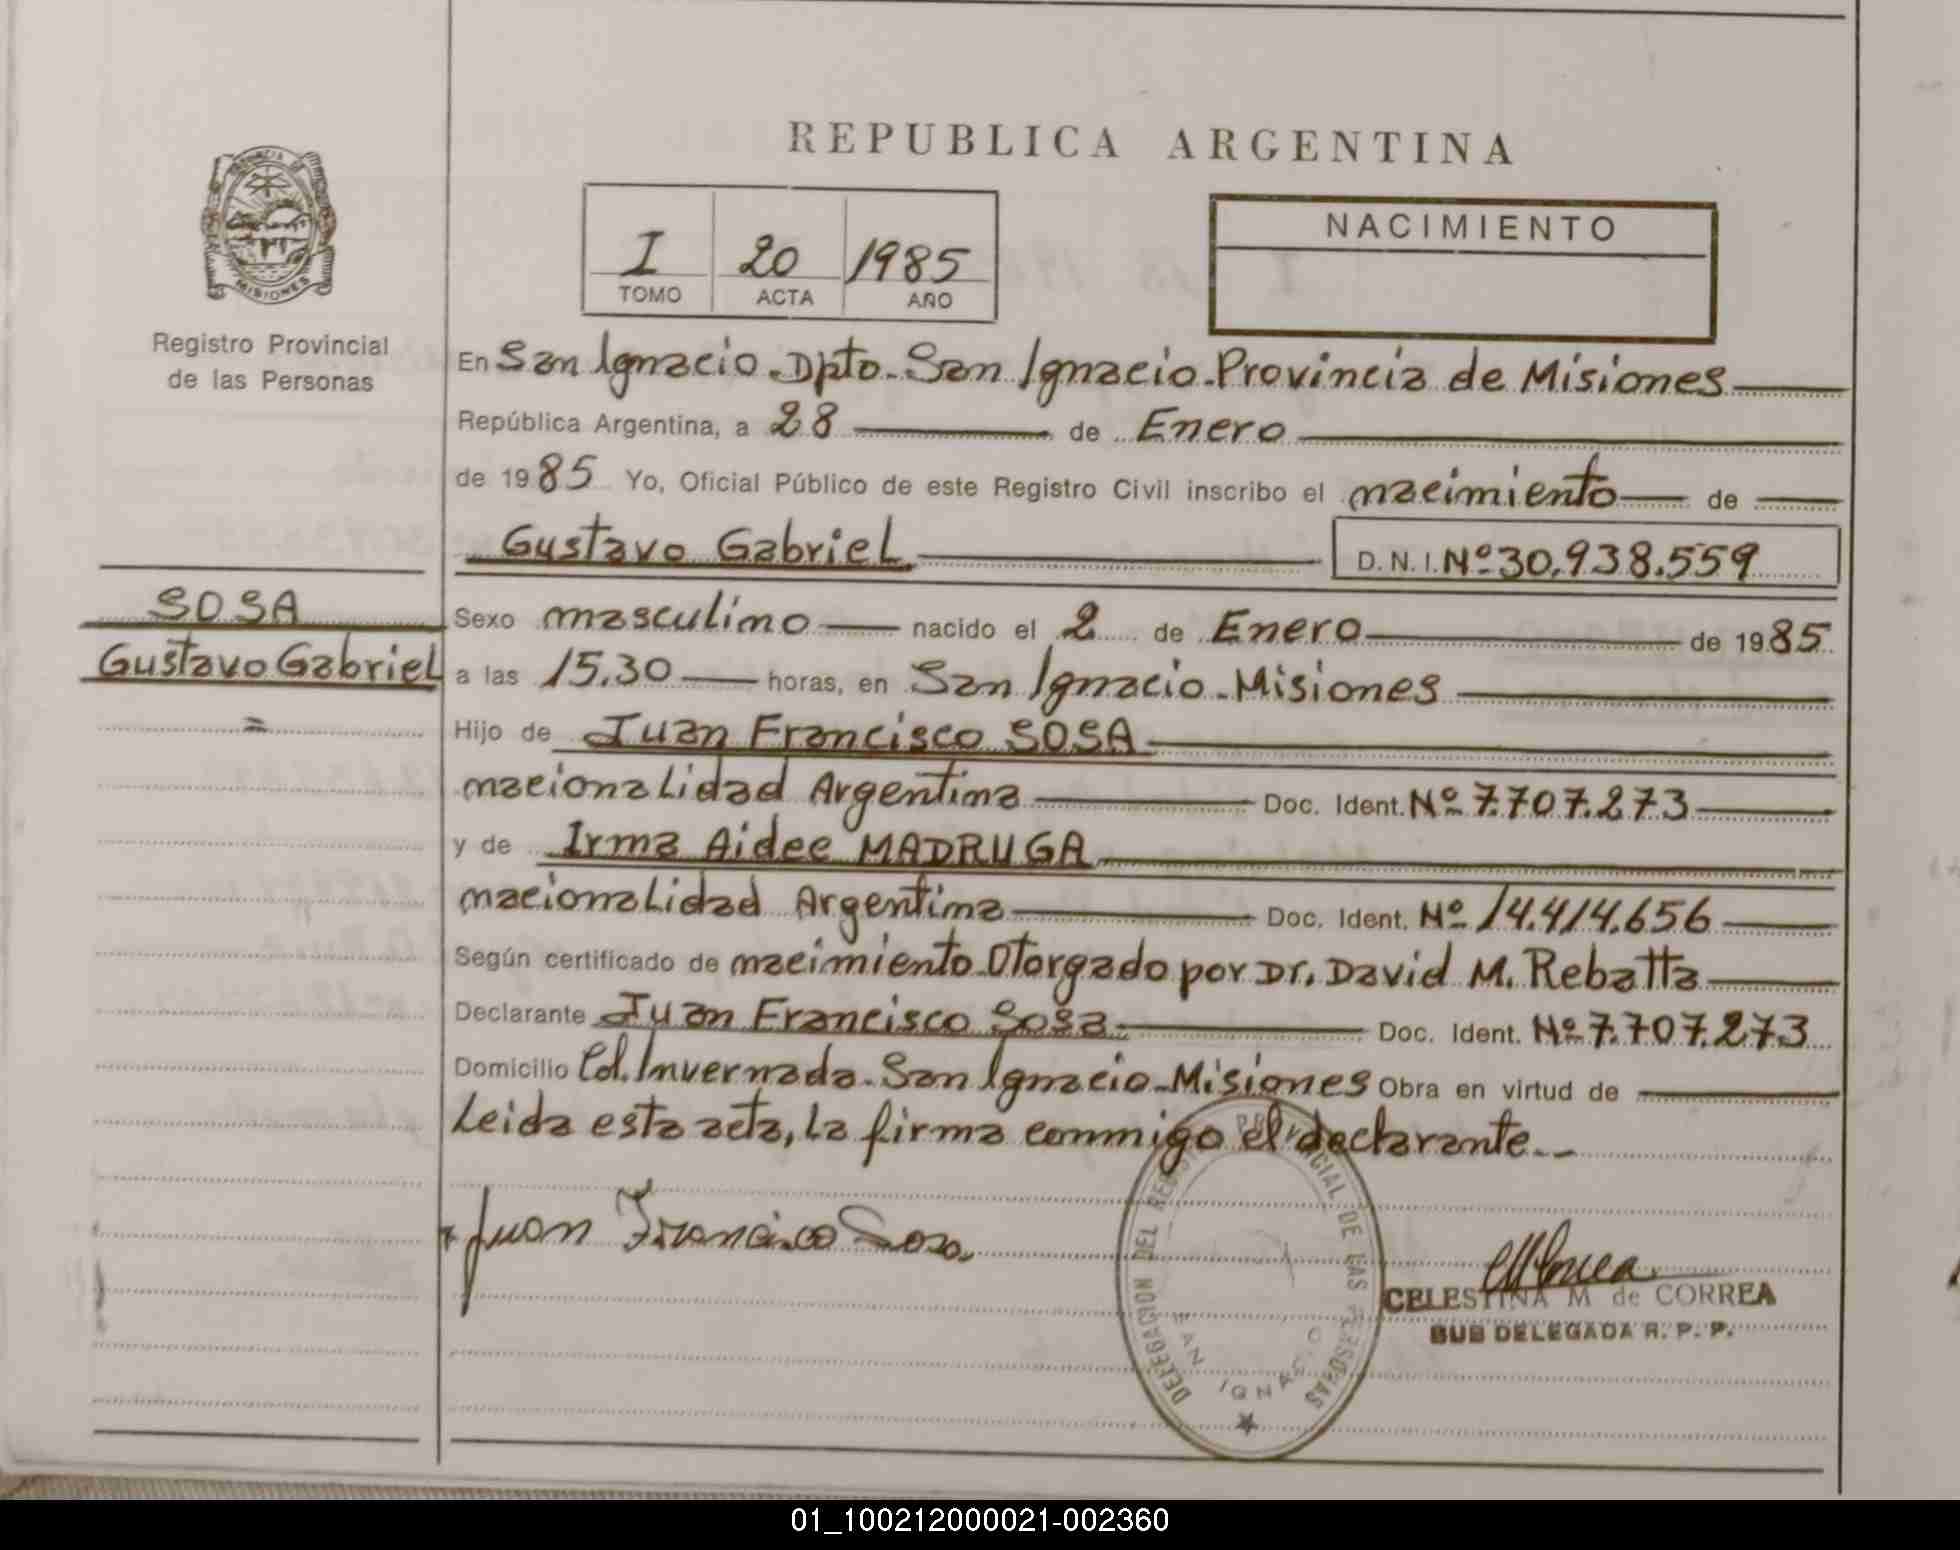 REPUBLICA ARGENTINA
PROVINCIA DE
MISIONES
Registro Provincial
de las Personas
I 20 1985
TOMO ACTA AÑO
NACIMIENTO
En San Ignacio Dpto. San Ignacio. Provincia de Misiones
República Argentina, a 28 de Enero
de 1985 Yo, Oficial Público de este Registro Civil inscribo el nacimiento de
Gustavo Gabriel. D. N. I. Nº 30.938.559
SOSA
Gustavo Gabriel
=
Sexo masculino nacido el 2 de Enero de 1985
a las 15.30 horas, en San Ignacio - Misiones
Hijo de Juan Francisco SOSA
nacionalidad Argentina Doc. Ident. Nº 7.707.273
y de Irma Aidee MADRUGA
nacionalidad Argentina Doc. Ident. Nº 14.414.656
Según certificado de nacimiento Otorgado por Dr. David M. Rebatta
Declarante Juan Francisco Sosa Doc. Ident. Nº 7.707.273
Domicilio Col. Invernada. San Ignacio - Misiones Obra en virtud de
Leida esta acta, la firma conmigo el declarante.
Juan Francisco Sosa
DELEGACION DEL REGISTRO PROVINCIAL DE LAS PERSONAS
SAN IGNACIO
CELESTINA M de CORREA
SUB DELEGADA R. P. P.
01_100212000021-002360